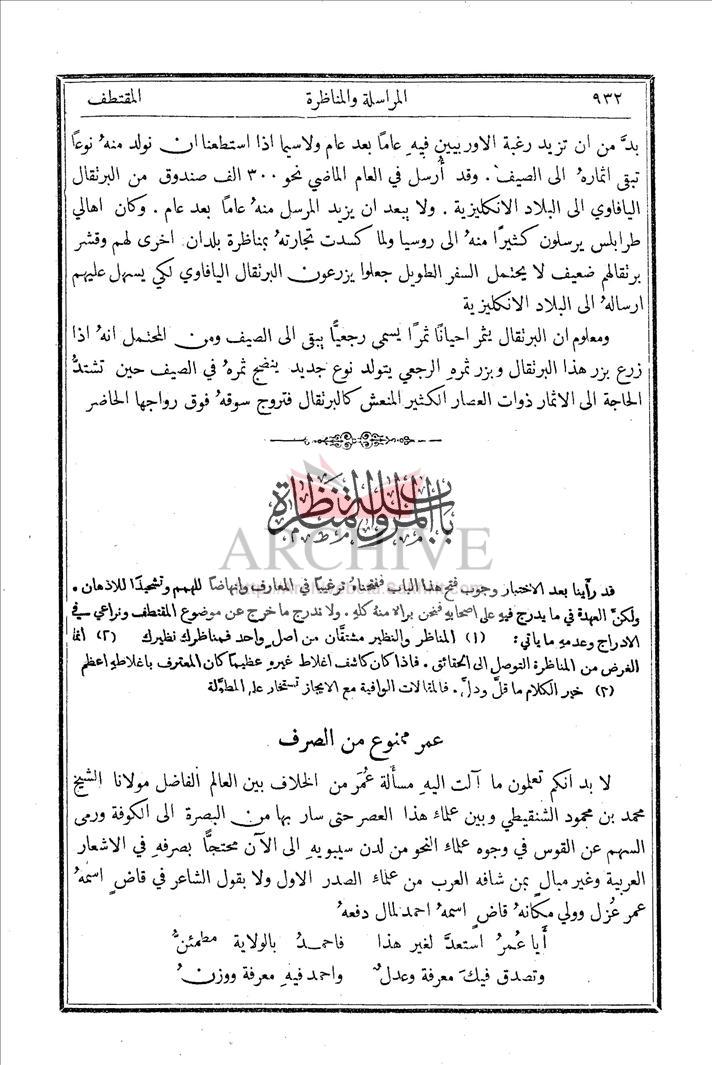 ٩٣٢ المراسلة والمناظرة المقتطف
بدَّ من ان تزيد رغبة الاوربيين فيهِ عامًا بعد عام ولاسيما اذا استطعنا ان نولد منهُ نوعًا
تبقى اثمارهُ الى الصيف . وقد أُرسل في العام الماضي نحو ٣٠٠ الف صندوق من البرتقال
اليافاوي الى البلاد الانكليزية . ولا يبعد ان يزيد المرسل منهُ عامًا بعد عام . وكان اهالي
طرابلس يرسلون كثيرًا منهُ الى روسيا ولما كسدت تجارتهُ بمناظرة بلدان اخرى لهم وقشر
برتقالهم ضعيف لا يحتمل السفر الطويل جعلوا يزرعون البرتقال اليافاوي لكي يسهل عليهم
ارسالهُ الى البلاد الانكليزية
ومعلوم ان البرتقال يثمر احيانًا ثمرًا يسمى رجعيًّا يبقى الى الصيف ومن المحتمل انهُ اذا
زرع بزر هذا البرتقال وبزر ثمرهِ الرجعي يتولد نوع جديد ينضج ثمرهُ في الصيف حين تشتدُّ
الحاجة الى الاثمار ذوات العصار الكثير المنعش كالبرتقال فتروج سوقهُ فوق رواجها الحاضر
باب المراسلة والمناظرة
ARCHIVE
قد رأينا بعد الاختبار وجوب فتح هذا الباب ففتحناهُ ترغيبًا في المعارف وانهاضًا للهمم وتشحيذًا للاذهان .
ولكنَّ العهدة في ما يدرج فيهِ على اصحابهِ فنحن براء منهُ كلهِ . ولا ندرج ما خرج عن موضوع المقتطف ونراعي في
الادراج وعدمهِ ما يأتي : (١) المناظر والنظير مشتقَّان من اصلٍ واحد فمناظرك نظيرك (٢) انما
الغرض من المناظرة التوصل الى الحقائق . فاذا كان كاشف اغلاط غيرهِ عظيمًا كان المعترف باغلاطهِ اعظم
(٣) خير الكلام ما قلَّ ودلَّ . فالمقالات الوافية مع الايجاز تستخار على المطوَّلة
عمر ممنوع من الصرف
لا بد انكم تعلمون ما آلت اليهِ مسألة عُمَر من الخلاف بين العالم الفاضل مولانا الشيخ
محمد بن محمود الشنقيطي وبين علماء هذا العصر حتى سار بها من البصرة الى الكوفة ورمى
السهم عن القوس في وجوه علماء النحو من لدن سيبويهِ الى الآن محتجًّا بصرفهِ في الاشعار
العربية وغير مبالٍ بمن شافه العرب من علماء الصدر الاول ولا بقول الشاعر في قاضٍ اسمهُ
عمر عُزل وولي مكانهُ قاضٍ اسمهُ احمد لمال دفعهُ
أَيا عُمَرُ استعدَّ لغير هذا فاحمدُ بالولاية مطمئنُّ
وتصدق فيكَ معرفة وعدلٌ واحمد فيهِ معرفة ووزنُ